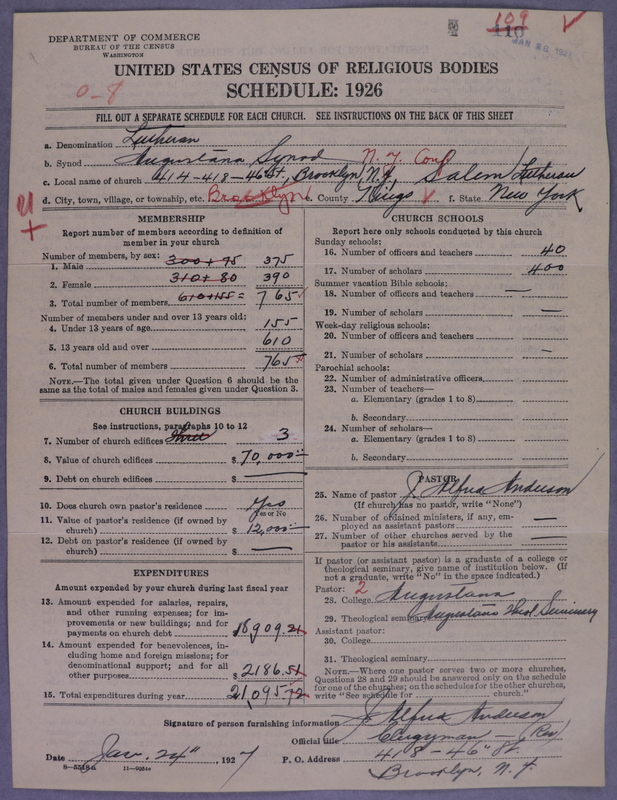 109
110
DEPARTMENT OF COMMERCE
BUREAU OF THE CENSUS
WASHINGTON
UNITED STATES CENSUS OF RELIGIOUS BODIES
SCHEDULE: 1926
0-8
FILL OUT A SEPARATE SCHEDULE FOR EACH CHURCH. SEE INSTRUCTIONS ON THE BACK OF THIS SHEET
a. Denomination Lutheran
b. Synod Augustana Synod N.Y. Conf
c. Local name of church 414-418-46 St., Brooklyn N.Y. Salem Lutheran
d. City, town, village, or township, etc. Brooklyn e. County Kings f. State New York
MEMBERSHIP
Report number of members according to definition of member in your church
Number of members, by sex:
1. Male 300+75 375
2. Female 310+80 390
3. Total number of members 610+155= 765
Number of members under and over 13 years old:
4. Under 13 years of age 155
5. 13 years old and over 610
6. Total number of members 765
NOTE.—The total given under Question 6 should be the same as the total of males and females given under Question 3.
CHURCH BUILDINGS
See instructions, paragraphs 10 to 12
7. Number of church edifices Three 3
8. Value of church edifices $ 70,000
9. Debt on church edifices $ —
10. Does church own pastor's residence Yes
Yes or No
11. Value of pastor's residence (if owned by church) $ 12,000
12. Debt on pastor's residence (if owned by church) $ —
EXPENDITURES
Amount expended by your church during last fiscal year
13. Amount expended for salaries, repairs, and other running expenses; for improvements or new buildings; and for payments on church debt 18909.21
14. Amount expended for benevolences, including home and foreign missions; for denominational support; and for all other purposes $ 2186.51
15. Total expenditures during year 21,095.72
CHURCH SCHOOLS
Report here only schools conducted by this church
Sunday schools:
16. Number of officers and teachers 40
17. Number of scholars 400
Summer vacation Bible schools:
18. Number of officers and teachers —
19. Number of scholars —
Week-day religious schools:
20. Number of officers and teachers
21. Number of scholars —
Parochial schools:
22. Number of administrative officers
23. Number of teachers—
a. Elementary (grades 1 to 8)
b. Secondary
24. Number of scholars—
a. Elementary (grades 1 to 8)
b. Secondary
PASTOR
25. Name of pastor J. Alfred Anderson
(If church has no pastor, write "None")
26. Number of ordained ministers, if any, employed as assistant pastors —
27. Number of other churches served by the pastor or his assistants —
If pastor (or assistant pastor) is a graduate of a college or theological seminary, give name of institution below. (If not a graduate, write "No" in the space indicated.)
Pastor: 2
28. College Augustana
29. Theological seminary Augustana Theol. Seminary
Assistant pastor:
30. College
31. Theological seminary
NOTE.—Where one pastor serves two or more churches, Questions 28 and 29 should be answered only on the schedule for one of the churches; on the schedules for the other churches, write "See schedule for church."
Signature of person furnishing information J. Alfred Anderson
Official title Clergyman - (Rev)
Date Jan. 24" 1927 P. O. Address 418-46" St.
Brooklyn, N.Y.